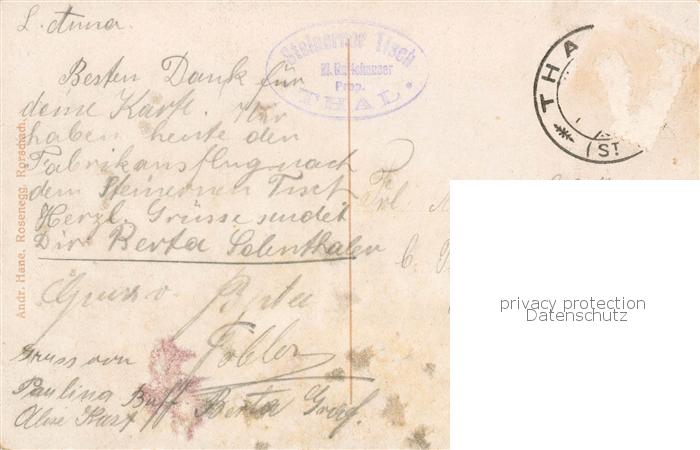 L. Anna.
Besten Dank für
deine Karte. Wir
haben heute den
Fabrikausflug nach
dem Steinernen Tisch
Herzl. Grüsse sendet
Dir Berta Solenthaler
Gruss v.
Tobler
Gruss von
Paulina Buff Berta Graf.
Alice Kast
Steinerner Tisch
Prop.
THAL.
THA
(ST
Frl.
Andr. Hane, Rosenegg, Rorschach.
privacy protection
Datenschutz